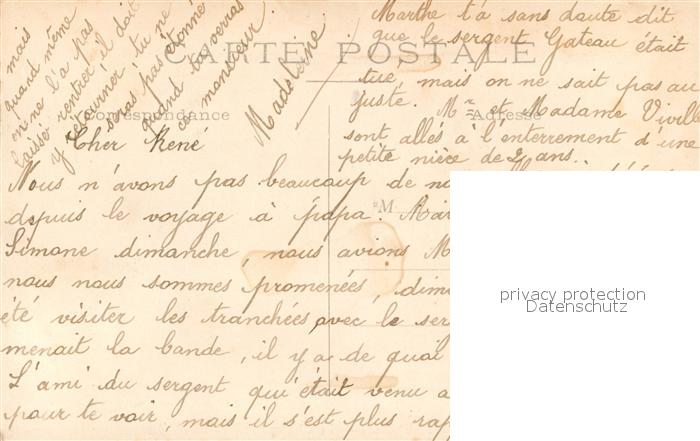 CARTE POSTALE
Correspondance
Adresse
M
Cher René
Nous n'avons pas beaucoup de no
depuis le voyage à papa. Mar
Simone dimanche, nous avions M
nous nous sommes promenées, dim
été visiter les tranchées avec le ser
menait la bande, il y a de quoi
L'ami du sergent qui était venu a
pour te voir, mais il s'est plus rap
Marthe t'a sans daute dit
que le sergent Gateau était
tué, mais on ne sait pas au
juste. Mr et Madame Viville
sont allés à l'enterrement d'une
petite nière de 2 ans.
mais
quand même
on ne l'a pas
laissé rentrer il doit
y retourner tu ne
seras pas étonné
quand tu verras
ce monsieur.
Madeleine
privacy protection
Datenschutz